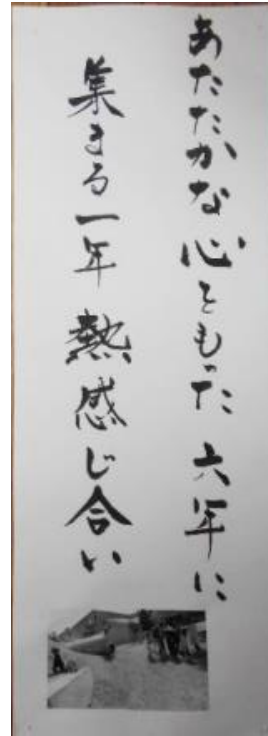 あたたかな心をもった六年に
集まる一年熱感じ合い